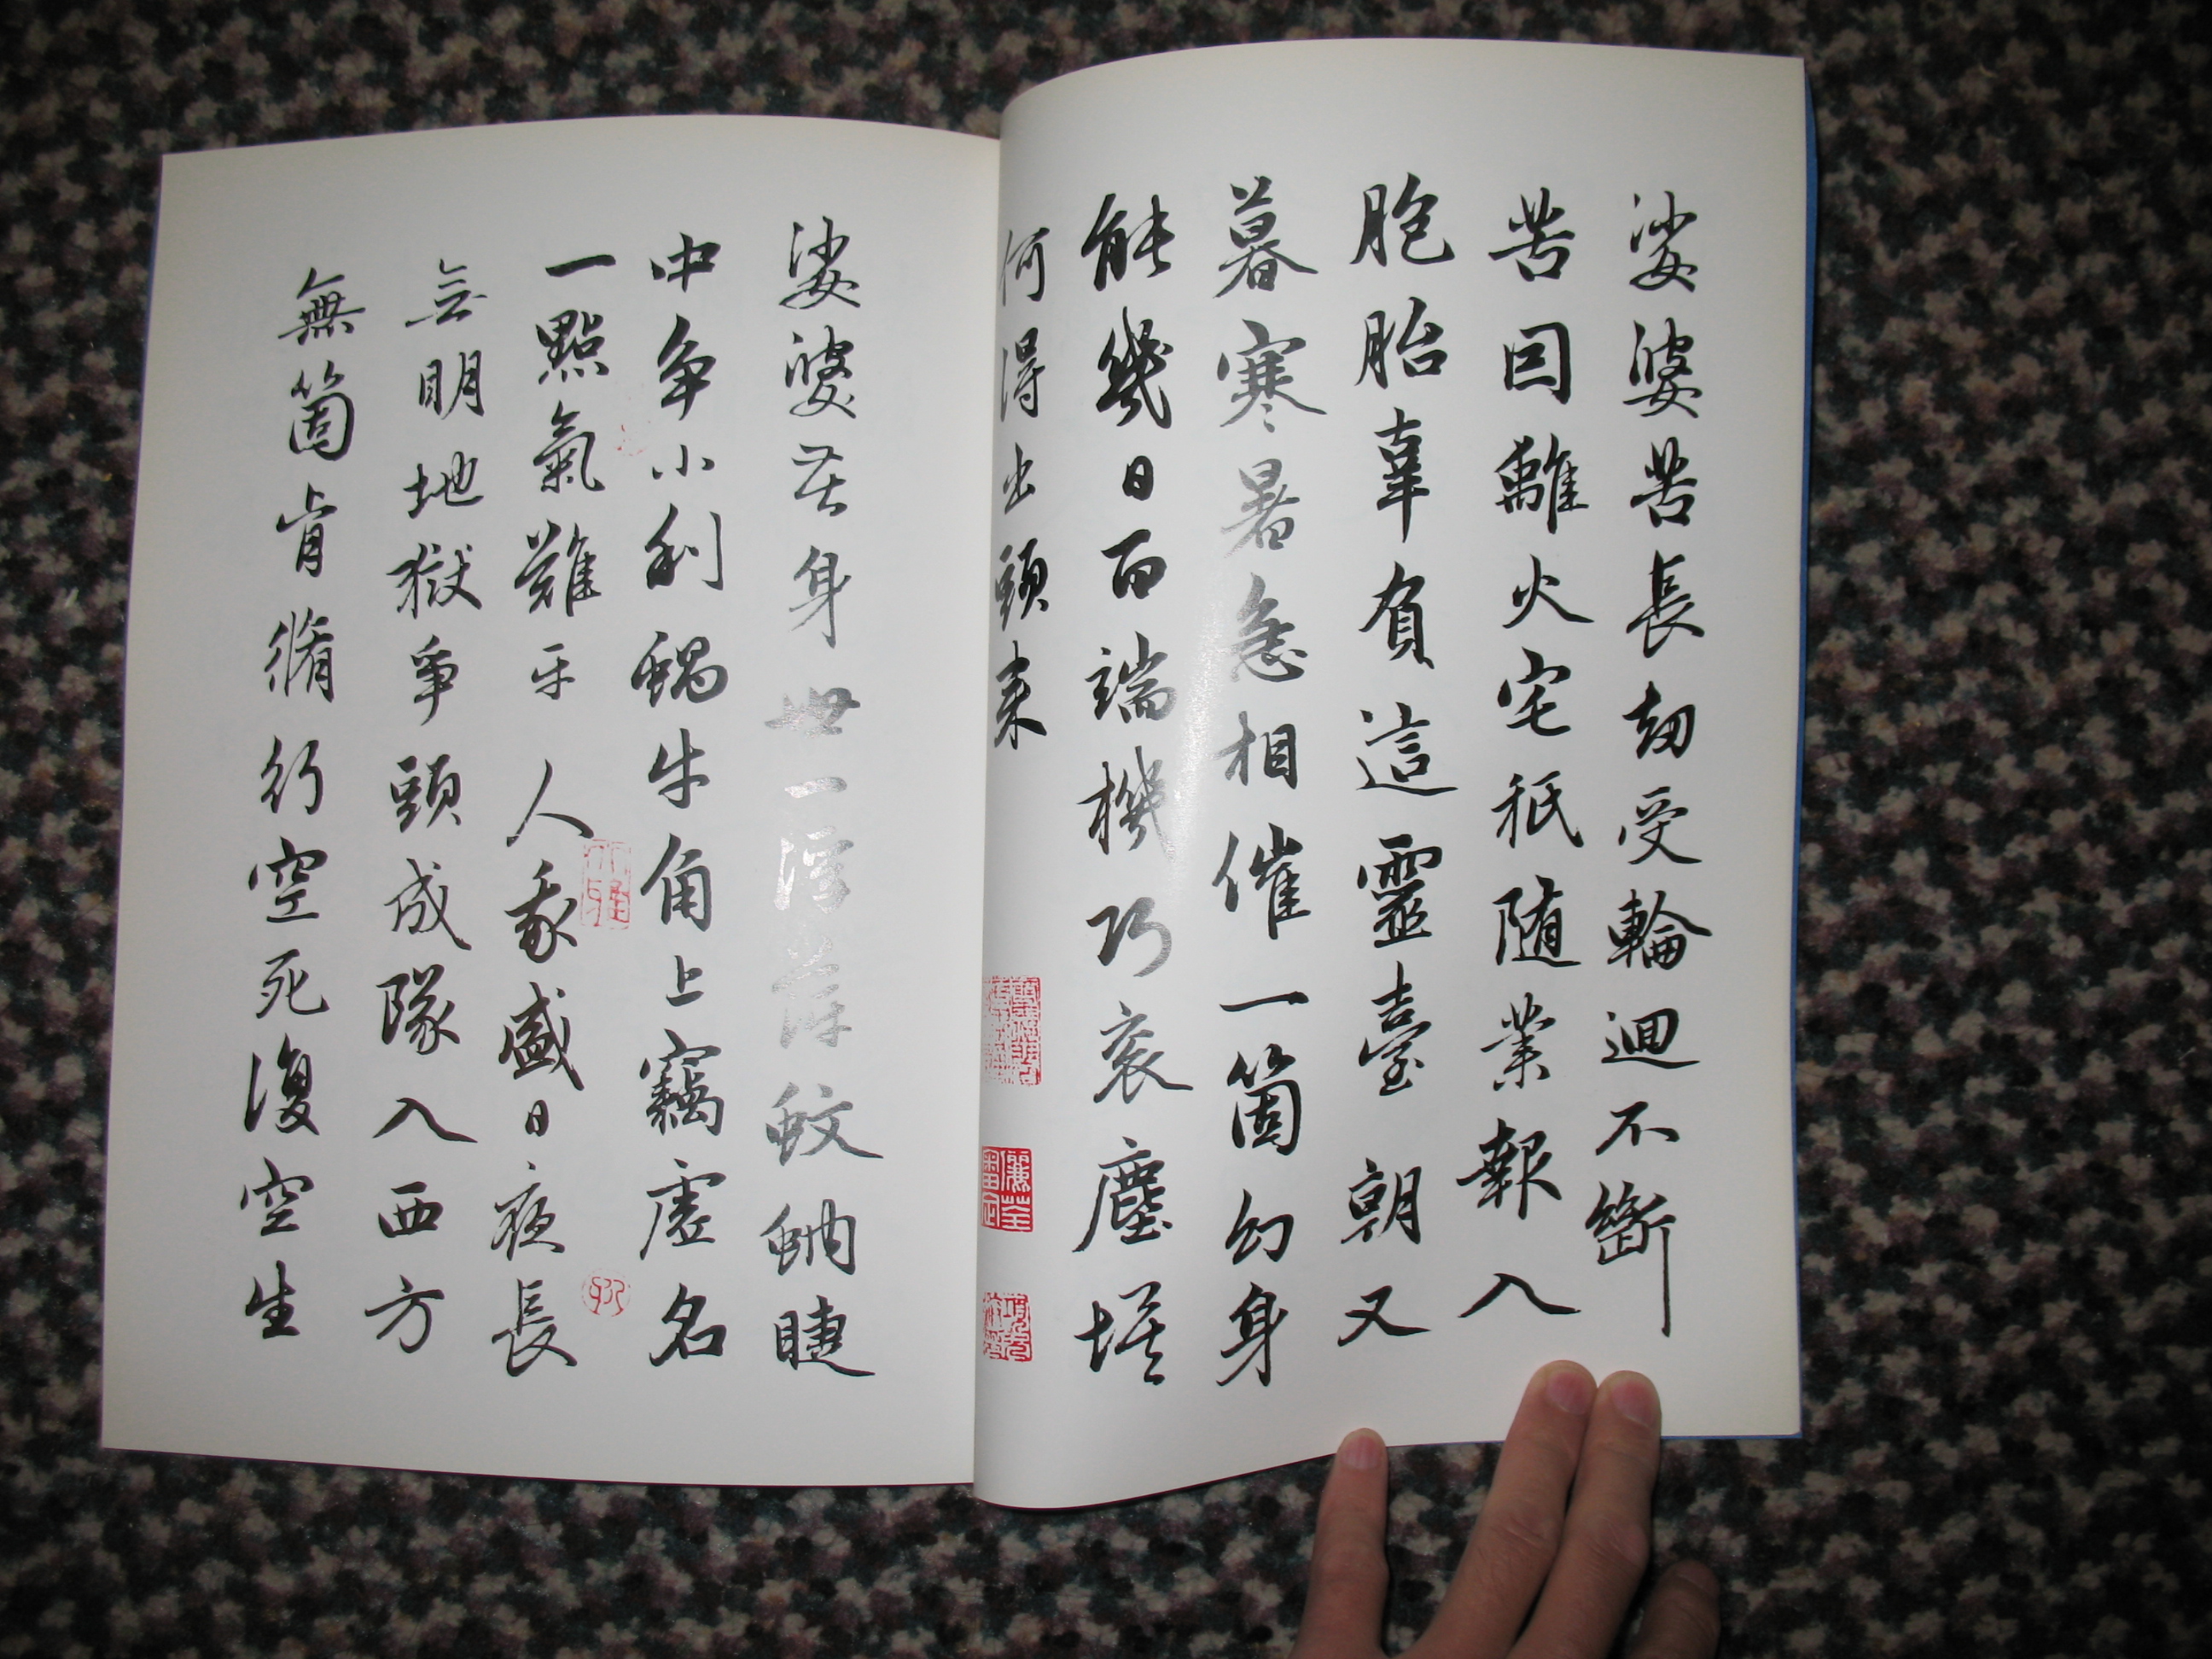 娑婆苦長劫受輪迴不斷
苦因離火宅秖随業報入
胞胎辜負這靈臺朝又
暮寒暑急相催一箇幻身
能幾日百端機巧衮塵埃
何得出頭来
娑婆苦身世一浮萍蚊蚋睫
中争小利蝸牛角上竊虚名
一點氣難平人我盛日夜長
無明地獄爭頭成隊入西方
無箇肯脩行空死復空生